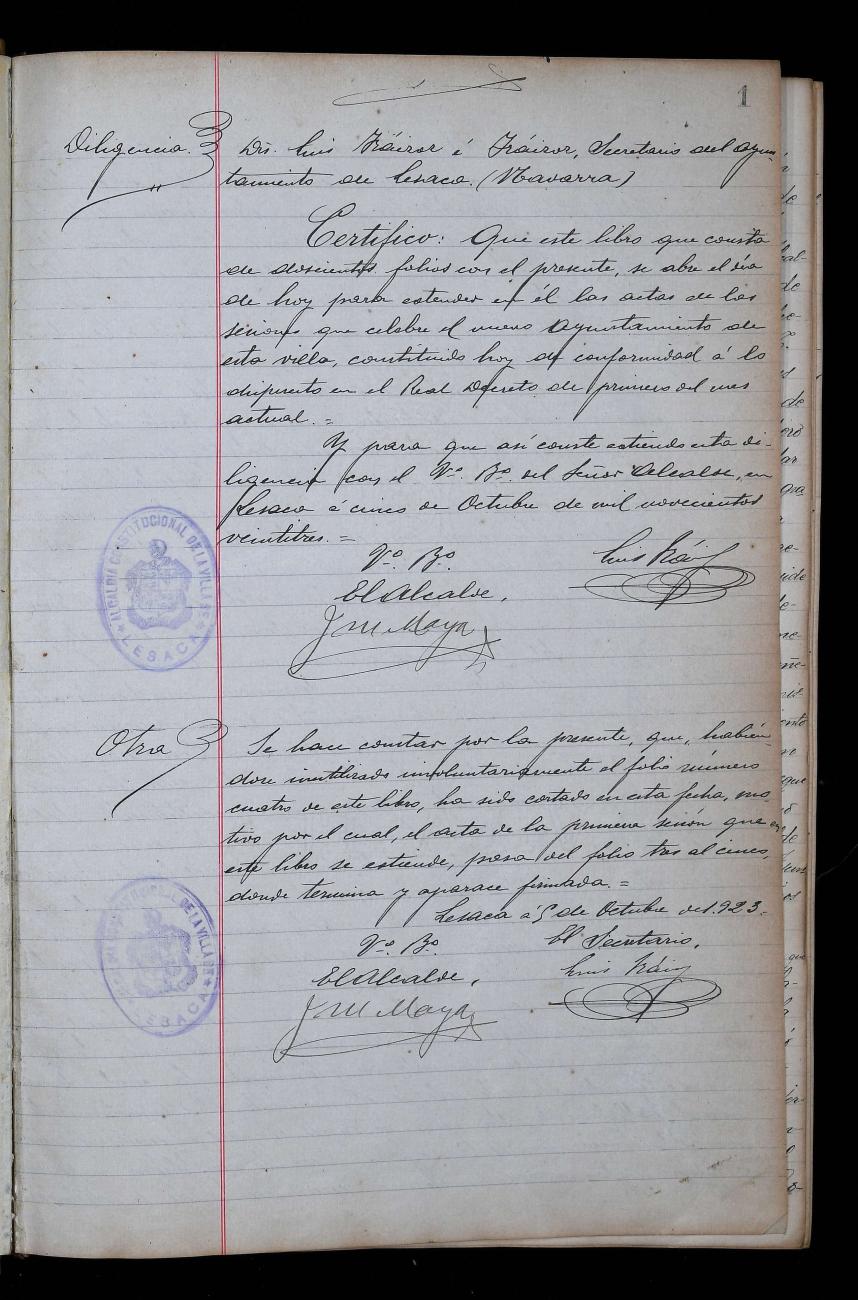 1
Diligencia.
Dn. Luis Iráizoz é Iráizoz, Secretario del Ayun-
tamiento de Lesaca. (Navarra)
Certifico: Que este libro que consta
de doscientos folios con el presente, se abre el día
de hoy para estender en él las actas de las
sesiones que celebre el nuevo Ayuntamiento de
esta villa, constituido hoy de conformidad á lo
dispuesto en el Real Decreto de primero del mes
actual.=
Y para que así conste estiendo esta di-
ligencia con el Vº. Bº. del Señor Alcalde, en
Lesaca á cinco de Octubre de mil novecientos
veintitres.=
Vº. Bº.
El Alcalde,
J M Maya
Luis Iráiz
ALCALDIA CONSTITUCIONAL DE LA VILLA DE
LESACA
Otra
Se hace constar por la presente, que, habién-
dose inutilizado involuntariamente el folio número
cuatro de este libro, ha sido cortado en esta fecha, mo-
tivo por el cual, el acta de la primera sesión que en
este libro se estiende, pasa del folio tres al cinco,
donde termina y aparace firmada.=
Lesaca á 5 de Octubre de 1.923.
Vº. Bº.
El Alcalde,
J M Maya
El Secretario,
Luis Iráiz
DE LA VILLA DE
LESACA